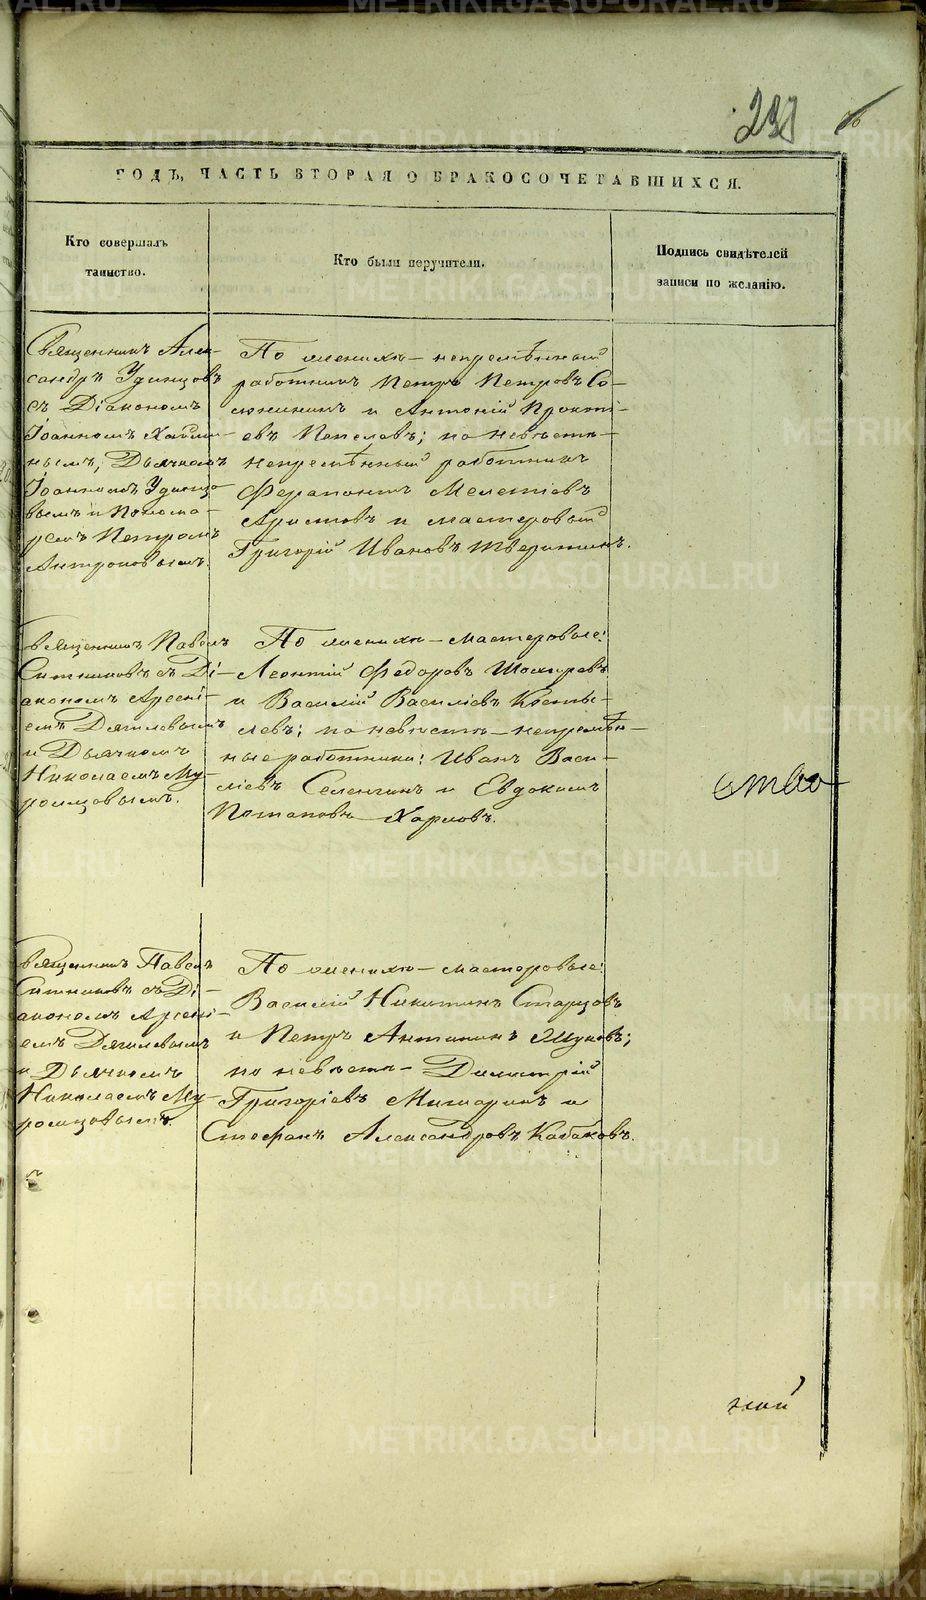 293
ГОДЪ, ЧАСТЬ ВТОРАЯ О БРАКОСОЧЕТАВШИХСЯ.
Кто совершалъ
таинство.
Кто были поручители.
Подпись свидѣтелей
записи по желанію.
Священникъ Алек-
сандръ Удинцовъ
съ Діакономъ
Іоанномъ
нымъ, Дьячкомъ
Іоанномъ Удинцо-
вымъ и Понома-
ремъ Петромъ
Антроповымъ.
По женихѣ – непремѣнный
работникъ Петръ Петровъ Со-
и Антоній Прокопі-
евъ Пепеловъ; по невѣстѣ –
непремѣнный работникъ
Ферапонтъ Мелетіевъ
Аристовъ и мастеровый
Григорій Ивановъ Тверитинъ.
Священникъ Павелъ
Ситниковъ съ Ді-
акономъ Арсені-
емъ Дягилевымъ
и Дьячкомъ
Николаемъ Му-
ромцовымъ.
По женихѣ – мастеровые:
Леонтій Федоровъ
и Василій Василіевъ Косты-
левъ; по невѣстѣ – непремѣн-
ные работники: Иванъ Васи-
ліевъ Селенгинъ и Евдокимъ
Потаповъ Харловъ.
ство
Священникъ Павелъ
Ситниковъ съ Ді-
акономъ Арсені-
емъ Дягилевымъ
и Дьячкомъ
Николаемъ Му-
ромцовымъ.
По женихѣ – мастеровые:
Василій Никитинъ Старцовъ
и Петръ Антипинъ Жуковъ;
по невѣстѣ – Димитрій
Григоріевъ Мишаринъ и
Стефанъ Александровъ Кабаковъ.
METRIKI.GASO-URAL.RU